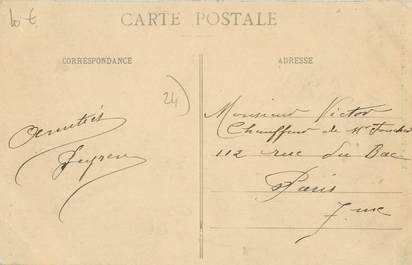 10 €
CARTE POSTALE
CORRESPONDANCE
ADRESSE
24
Amitiés
Monsieur Victor
Chauffeur de Mr
112 rue du Bac
Paris
7me